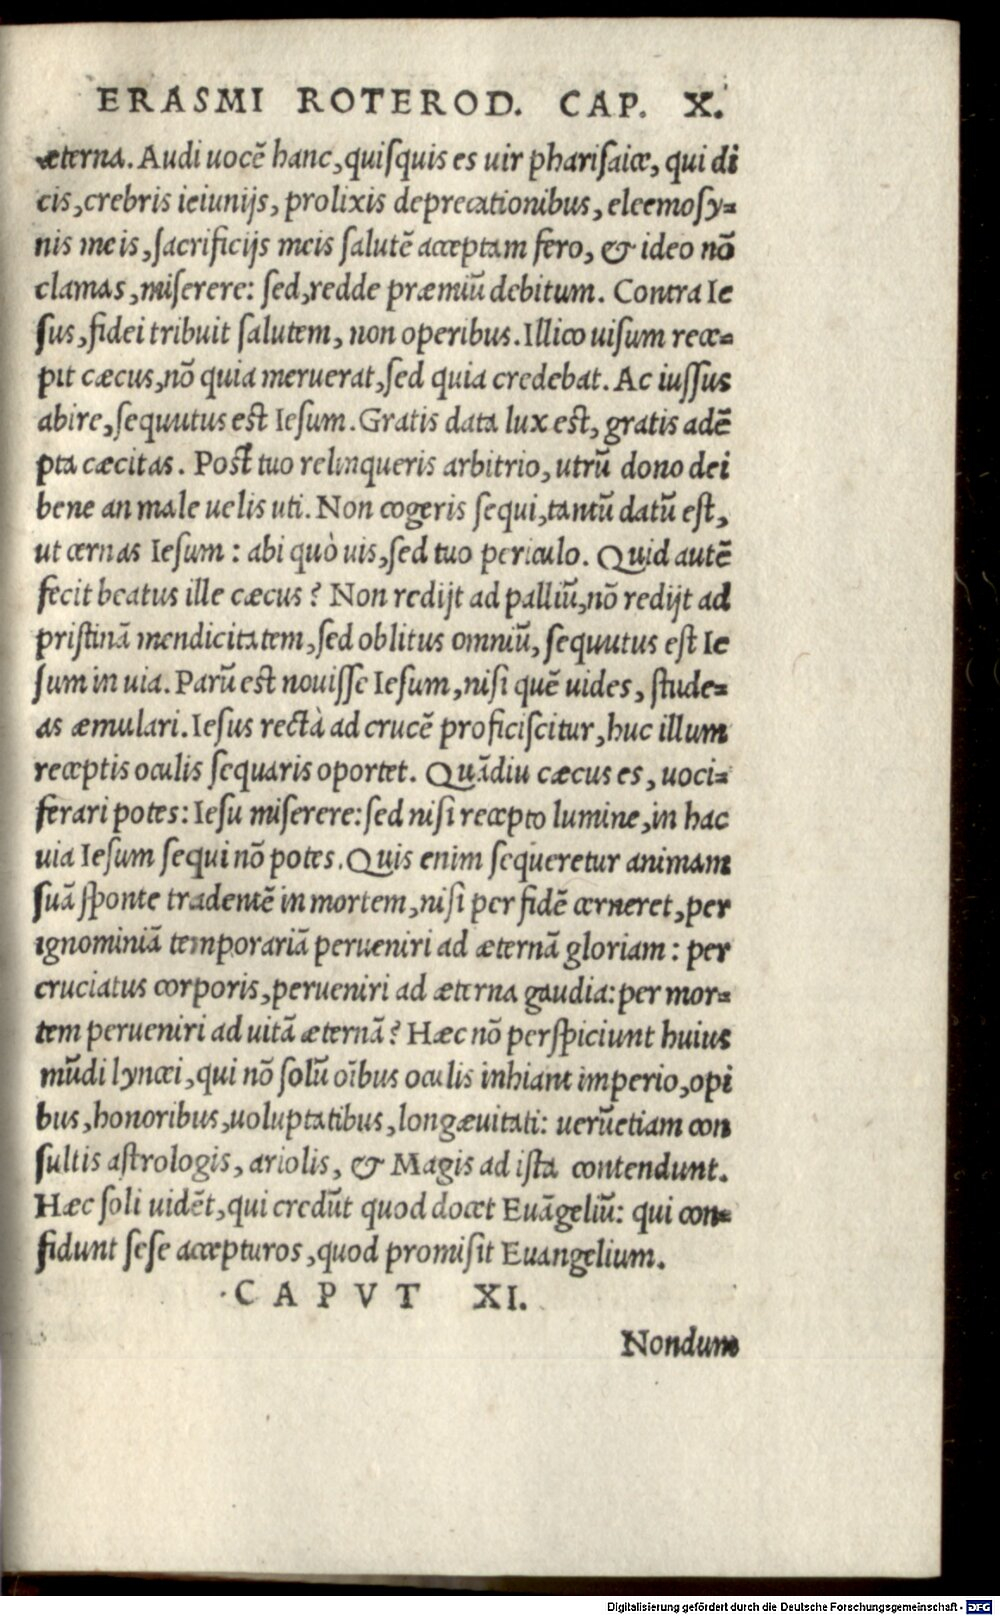 ERASMI ROTEROD. CAP. X.
æterna. Audi uocē hanc, quiſquis es uir phariſaice, qui di
cis, crebris ieiunijs, prolixis deprecationibus, eleemoſy=
nis meis, ſacrificijs meis ſalutē acceptam fero, & ideo nō
clamas, miſerere: ſed, redde præmiū debitum. Contra Ie
ſus, fidei tribuit ſalutem, non operibus. Illico uiſum rece=
pit cæcus, nō quia meruerat, ſed quia credebat. Ac iuſſus
abire, ſequutus eſt Ieſum. Gratis data lux eſt, gratis adē
pta cæcitas. Poſt tuo relinqueris arbitrio, utrū dono dei
bene an male uelis uti. Non cogeris ſequi, tantū datū eſt,
ut cernas Ieſum: abi quò uis, ſed tuo periculo. Quid autē
fecit beatus ille cæcus? Non redijt ad palliū, nō redijt ad
priſtinā mendicitatem, ſed oblitus omniū, ſequutus eſt Ie
ſum in uia. Parū eſt nouiſſe Ieſum, niſi quē uides, ſtude=
as æmulari. Ieſus rectà ad crucē proficiſcitur, huc illum
receptis oculis ſequaris oportet. Quādiu cæcus es, uoci=
ferari potes: Ieſu miſerere: ſed niſi recepto lumine, in hac
uia Ieſum ſequi nō potes. Quis enim ſequeretur animam
ſuā ſponte tradentē in mortem, niſi per fidē cerneret, per
ignominiā temporariā perueniri ad æternā gloriam: per
cruciatus corporis, perueniri ad æterna gaudia: per mor=
tem perueniri ad uitā æternā? Hæc nō perſpiciunt huius
mūdi lyncei, qui nō ſolū oībus oculis inhiant imperio, opi
bus, honoribus, uoluptatibus, longæuitati: uerūetiam con
ſultis aſtrologis, ariolis, & Magis ad iſta contendunt.
Hæc ſoli uidēt, qui credūt quod docet Euāgeliū: qui con=
fidunt ſeſe accepturos, quod promiſit Euangelium.
CAPVT XI.
Nondum
Digitalisierung gefördert durch die Deutsche Forschungsgemeinschaft - DFG